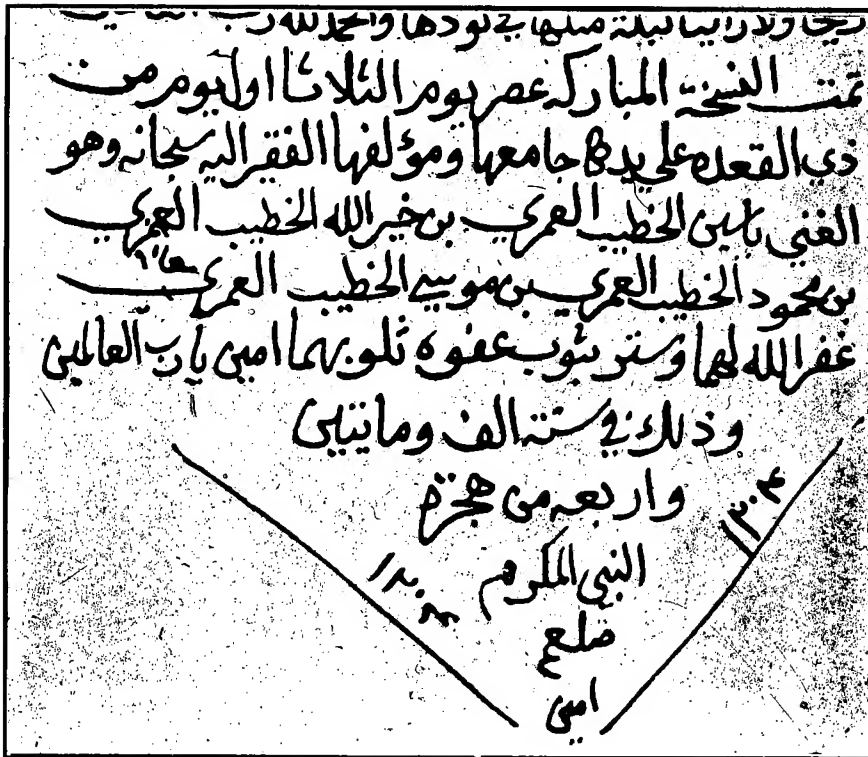 ريحا ولا راينا ليلة مثلها في نودها والحمد لله رب العالمين
تمت النسخة المباركه عصر يوم الثلاثا اول يوم من
ذي القعده على يد جامعها ومؤلفها الفقير اليه سبحانه وهو
الغني ياسين الخطيب العمري بن خير الله الخطيب العمري
بن محمود الخطيب العمري بن موسى الخطيب العمري
غفر الله لهما وستر بثوب عفوه ذنوبهما امين يا رب العالمين
وذلك في سنة الف ومايتين
واربعه من هجرة
النبي المكرم
صلعم
امين
١٢٠٤
١٢٠٤